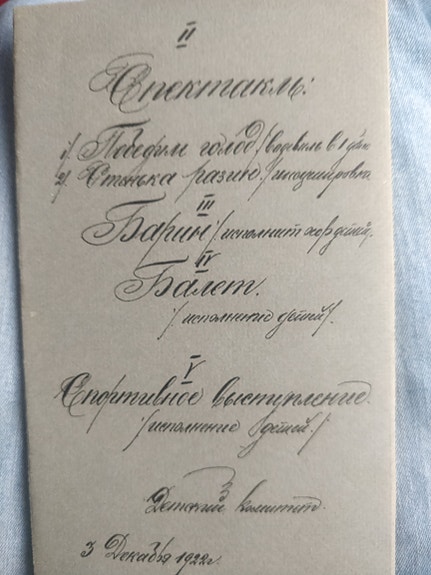 II
Спектакль:
1/ Победим голод /водевиль в 1 дейс
2/ Стенька разин. /инсценировка
III
Барин /исполнит хор детей/.
IV
Балет.
/исполнение детей/.
V
Спортивное выступление.
/исполнение детей./
Детский комитет.
3 Декабря 1922г.